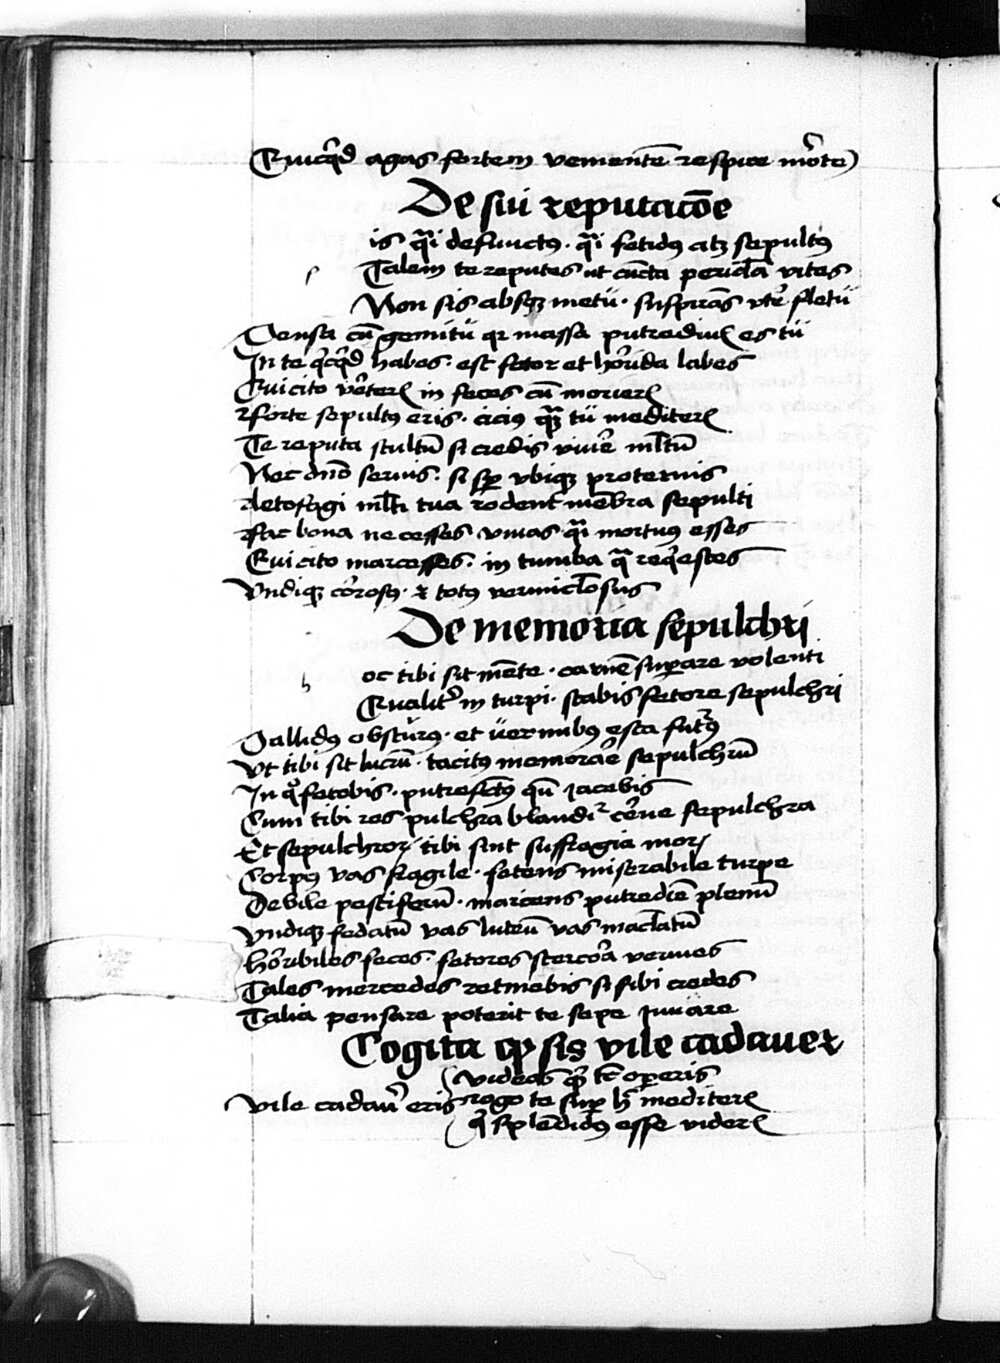 Quicq̃d agas fortem vementẽ respice mõrtẽ
De sui reputacõe
is q̃i defunctꝰ · q̃i fetidꝰ atqꝫ sepultꝰ
s Talem te reputes ut cũcta pericl̃a vites
Non sis absqꝫ metu · suspirãs vtẽ fletu
Pensa cũ gemitu qꝛ massa putrediniꝭ es tu
In te q̃cq̃d habes · est fetor et hõrrida labes
Qui cito vẽterꝭ in feces cũ morierꝭ
Forte sepultꝰ eris · ciciꝰ qᷓꝫ tu mediterꝭ
Te reputa stultũ si credis viuẽ ml̃tũ
Nec dño seruis · si sꝑ vbiqꝫ proteruis
ml̃ti tua rodent mẽbra sepulti
Fac bona ne cesses viuas q̃i mortuus esses
Qui cito marcesses · in tumba q̃ req̃estes
Vndiqꝫ cõrosꝰ · ⁊ totꝰ vermicl̃osus
De memoria sepulchri
oc tibi sit mẽte · carnẽ suꝑare volenti
h Qualit̃ in turpi · stabis fetore sepulchri
Pallidꝰ obscurꝰ · et vermibus esca futꝰ
Vt tibi sit lucrũ · tacitꝰ memorarẽ sepulchrũ
In qͦ fetebis · putrefactꝰ qñ iacebis
Cum tibi res pulchra blandiꝛ cẽrne sepulchra
Et sepulchroꝝ tibi sint suffragia moꝝ
Corpꝰ vas fragile · fetens miserabile turpe
Debile pestiferũ · marcens putredĩe plenũ
Vndiqꝫ fedatũ vas luteũ vas macl̃atũ
Hõrribiles feces · fetores stercõra vermes
Tales mercedes retinebis si sibi credes
Talia pensare poterit te sepe iuuare
Cogita ꝙ sis vile cadauer
videas q̃ tẽ oꝑeris
Vile cadauẽr eris rogo te suꝑ h̃ mediterꝭ
q̃ splẽdidꝰ esse viderꝭ